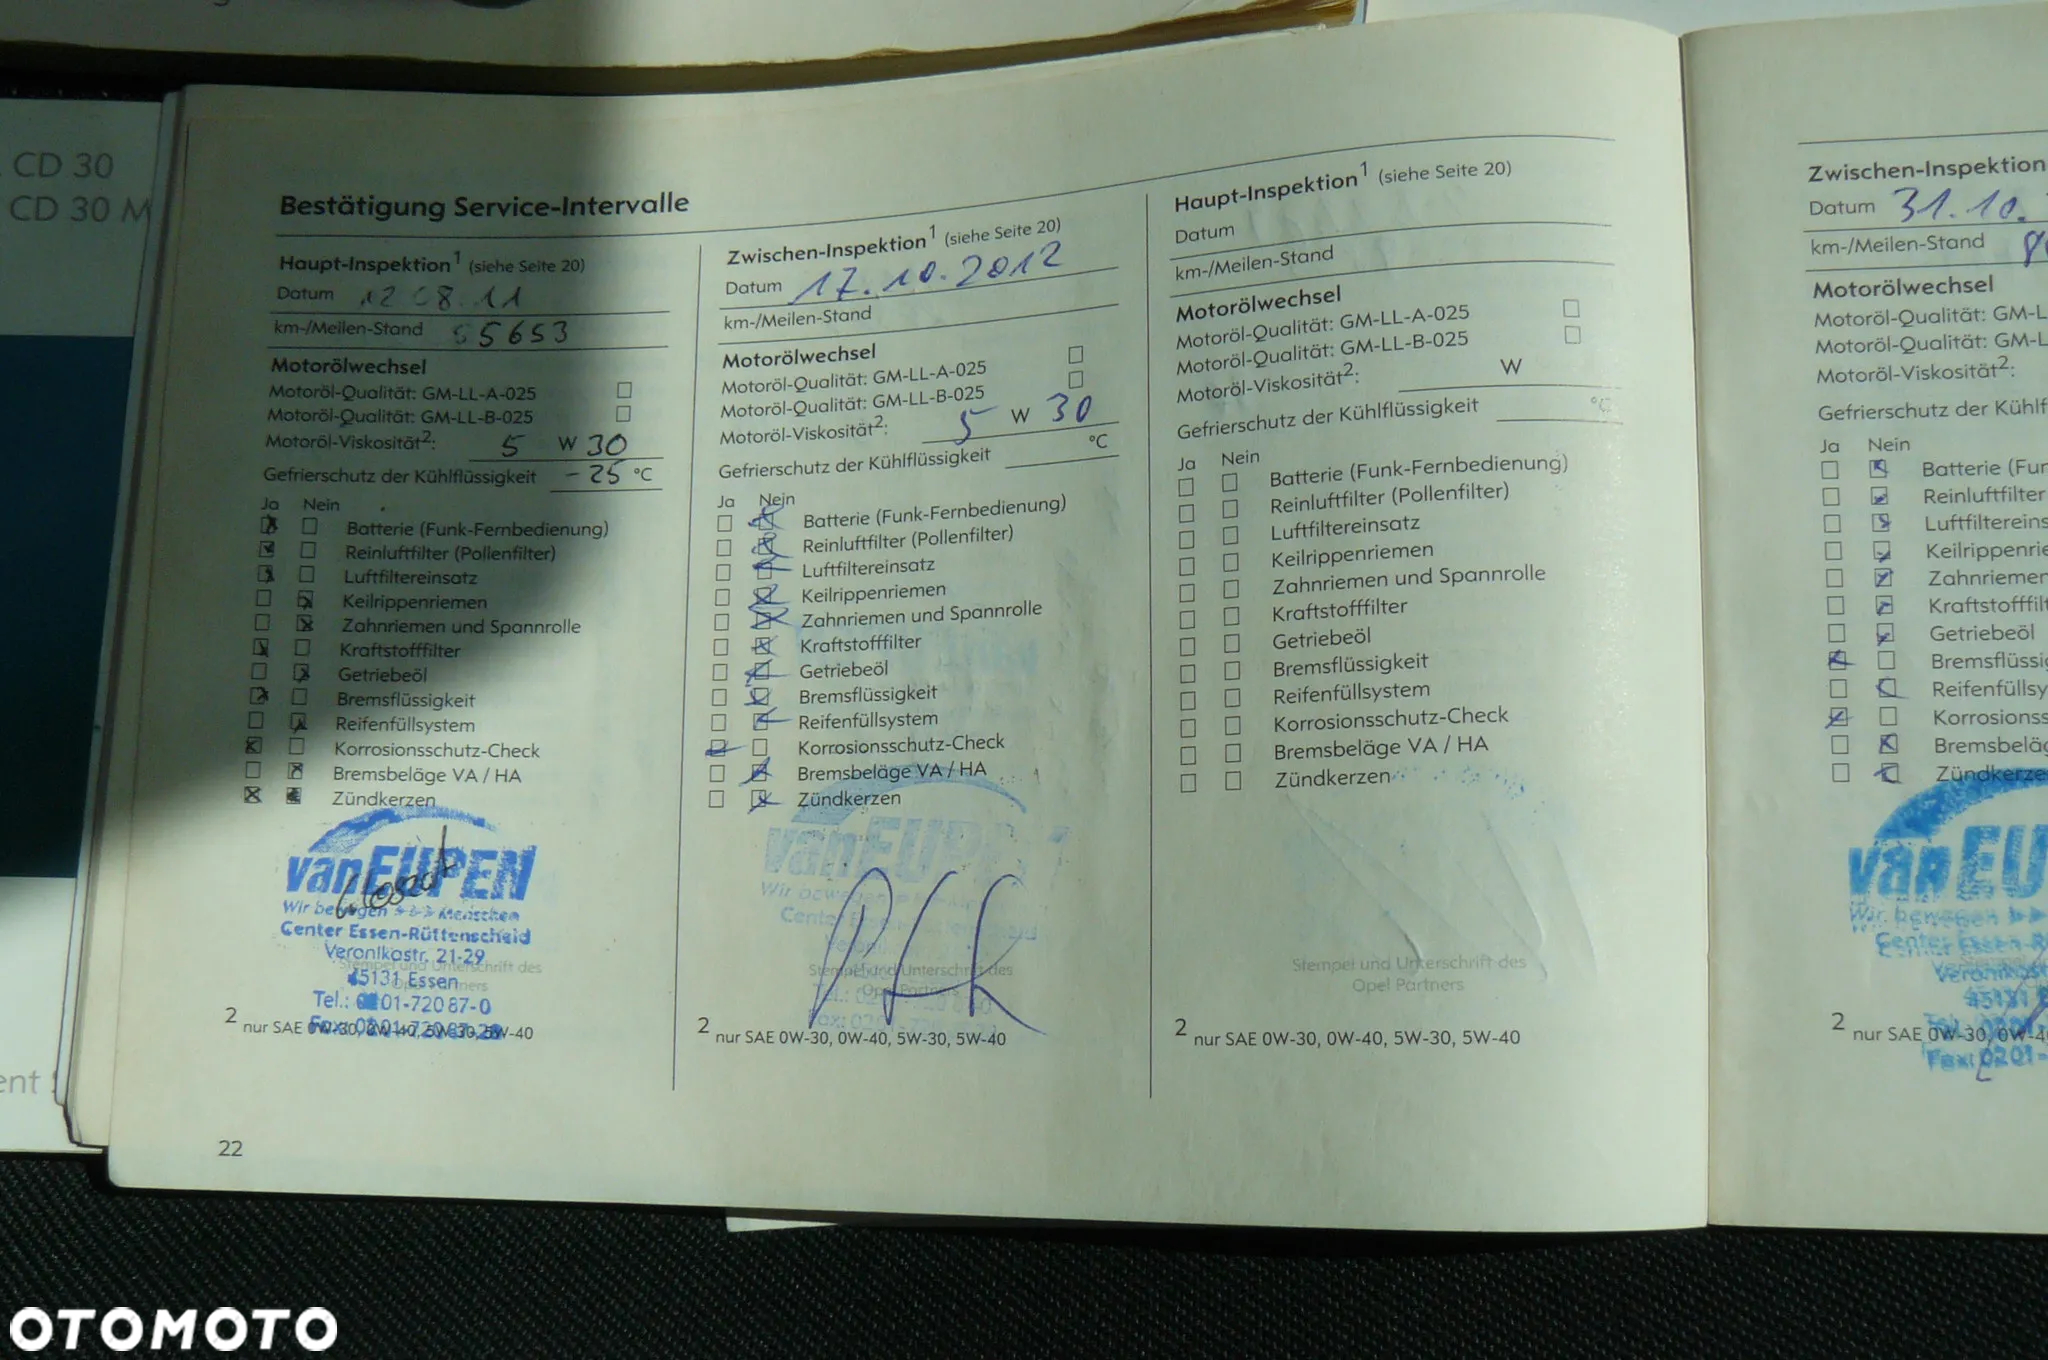 CD 30
CD 30 M
Bestätigung Service-Intervalle
Haupt-Inspektion1 (siehe Seite 20)
Datum 12 08.11
km-/Meilen-Stand 55653
Motorölwechsel
Motoröl-Qualität: GM-LL-A-025
Motoröl-Qualität: GM-LL-B-025
Motoröl-Viskosität2: 5 W 30
Gefrierschutz der Kühlflüssigkeit -25 °C
Ja Nein
Batterie (Funk-Fernbedienung)
Reinluftfilter (Pollenfilter)
Luftfiltereinsatz
Keilrippenriemen
Zahnriemen und Spannrolle
Kraftstofffilter
Getriebeöl
Bremsflüssigkeit
Reifenfüllsystem
Korrosionsschutz-Check
Bremsbeläge VA / HA
Zündkerzen
vanEUPEN
Wir bewegen Menschen
Center Essen-Rüttenscheid
Veronikastr. 21-29
Stempel und Unterschrift des
45131 Essen
Opel Partners
Tel.: 0201-720 87-0
2 nur SAE 0W-30, 0W-40, 5W-30, 5W-40
22
Zwischen-Inspektion1 (siehe Seite 20)
Datum 17.10.2012
km-/Meilen-Stand
Motorölwechsel
Motoröl-Qualität: GM-LL-A-025
Motoröl-Qualität: GM-LL-B-025
Motoröl-Viskosität2: 5 W 30
Gefrierschutz der Kühlflüssigkeit °C
Ja Nein
Batterie (Funk-Fernbedienung)
Reinluftfilter (Pollenfilter)
Luftfiltereinsatz
Keilrippenriemen
Zahnriemen und Spannrolle
Kraftstofffilter
Getriebeöl
Bremsflüssigkeit
Reifenfüllsystem
Korrosionsschutz-Check
Bremsbeläge VA / HA
Zündkerzen
vanEUPEN
Stempel und Unterschrift des
Opel Partners
2 nur SAE 0W-30, 0W-40, 5W-30, 5W-40
Haupt-Inspektion1 (siehe Seite 20)
Datum
km-/Meilen-Stand
Motorölwechsel
Motoröl-Qualität: GM-LL-A-025
Motoröl-Qualität: GM-LL-B-025
Motoröl-Viskosität2: W
Gefrierschutz der Kühlflüssigkeit °C
Ja Nein
Batterie (Funk-Fernbedienung)
Reinluftfilter (Pollenfilter)
Luftfiltereinsatz
Keilrippenriemen
Zahnriemen und Spannrolle
Kraftstofffilter
Getriebeöl
Bremsflüssigkeit
Reifenfüllsystem
Korrosionsschutz-Check
Bremsbeläge VA / HA
Zündkerzen
Stempel und Unterschrift des
Opel Partners
2 nur SAE 0W-30, 0W-40, 5W-30, 5W-40
Zwischen-Inspektion
Datum 31.10.
km-/Meilen-Stand
Motorölwechsel
Motoröl-Qualität: GM-L
Motoröl-Qualität: GM-L
Motoröl-Viskosität2:
Gefrierschutz der Kühlf
Ja Nein
Batterie (Fun
Reinluftfilter
Luftfiltereins
Keilrippenrie
Zahnriemen
Kraftstofffilt
Getriebeöl
Bremsflüssig
Reifenfüllsy
Korrosionss
Bremsbeläg
Zündkerze
vanEU
Wir bewegen
Center Essen-Rü
2 nur SAE 0W-30, 0W-4
OTOMOTO